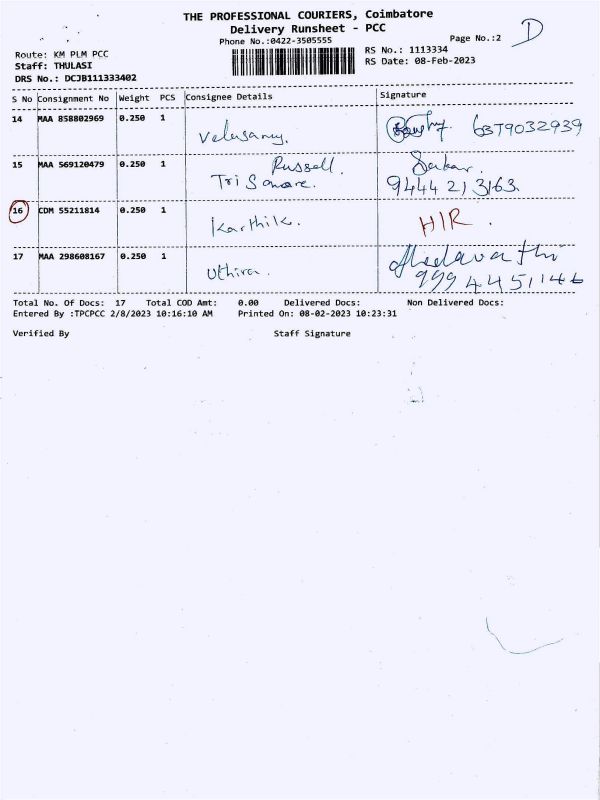 THE PROFESSIONAL COURIERS, Coimbatore
Delivery Runsheet - PCC
Phone No.:0422-3505555
Page No.:2
D
Route: KM PLM PCC
RS No.: 1113334
Staff: THULASI
RS Date: 08-Feb-2023
DRS No.: DCJB111333402
S No Consignment No Weight PCS Consignee Details Signature
14 MAA 858802969 0.250 1 Velusamy. 6379032939
15 MAA 569120479 0.250 1 Russell.
Tri Square. 9444213163
16 CDM 55211814 0.250 1 Karthik. HIR.
17 MAA 298608167 0.250 1 Uthira. 9994451146
Total No. Of Docs: 17 Total COD Amt: 0.00 Delivered Docs: Non Delivered Docs:
Entered By :TPCPCC 2/8/2023 10:16:10 AM Printed On: 08-02-2023 10:23:31
Verified By Staff Signature